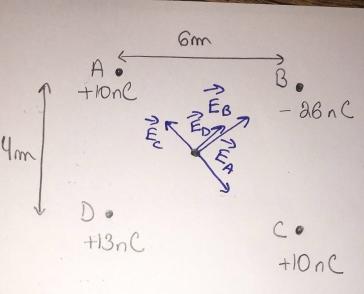 6m
A
+10nC
B
-26nC
E_B
E_D
E_C
E_A
4m
D
+13nC
C
+10nC